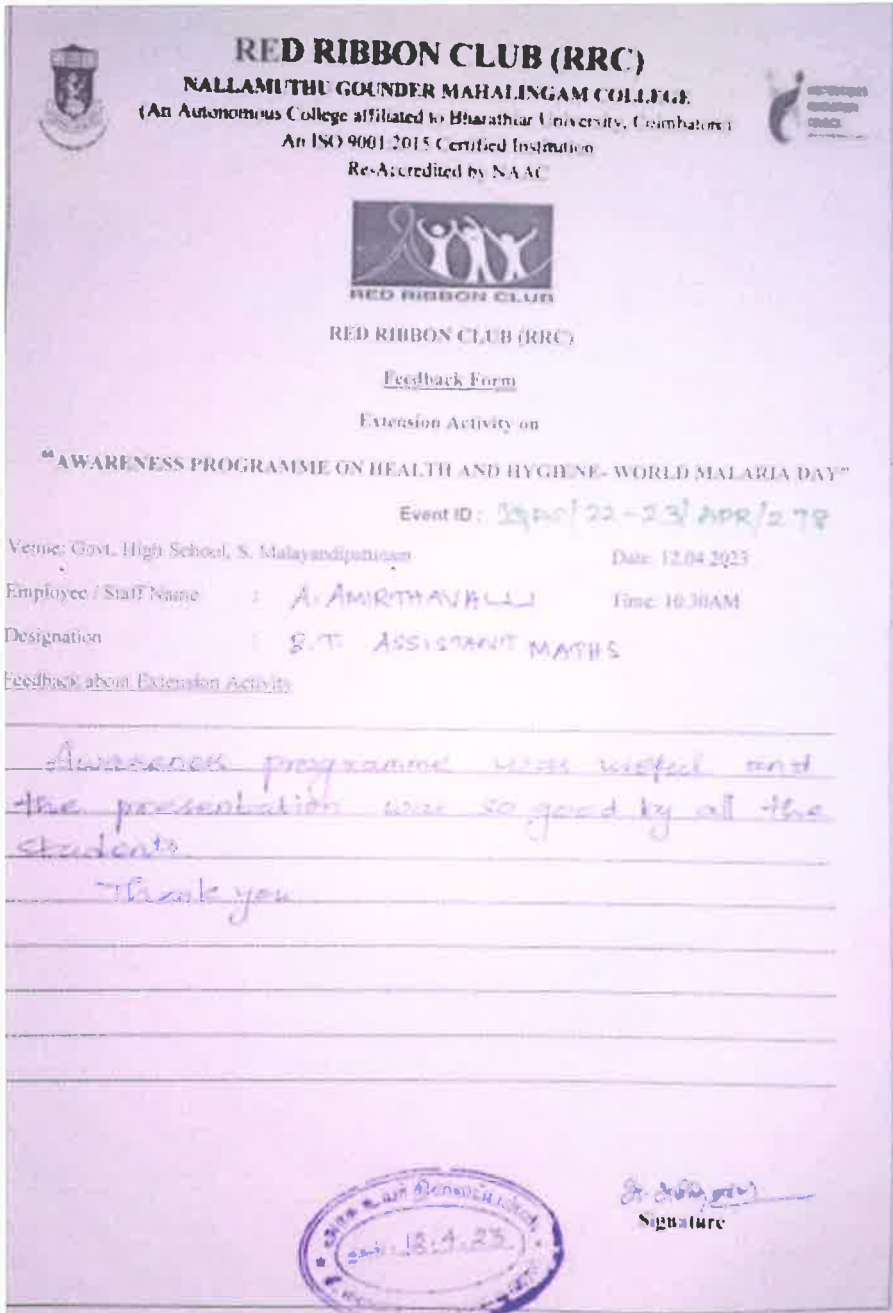 RED RIBBON CLUB (RRC)
NALLAMUTHU GOUNDER MAHALINGAM COLLEGE
(An Autonomous College affiliated to Bharathiar University, Coimbatore)
An ISO 9001:2015 Certified Institution
Re-Accredited by NAAC
RED RIBBON CLUB
RED RIBBON CLUB (RRC)
Feedback Form
Extension Activity on
"AWARENESS PROGRAMME ON HEALTH AND HYGIENE- WORLD MALARIA DAY"
Event ID: /22-23/APR/278
Venue: Govt. High School, S. Malayandipattinam Date: 12.04.2023
Employee / Staff Name : A. AMIRTHAVALLI Time: 10.30AM
Designation : B.T. ASSISTANT MATHS
Feedback about Extension Activity
Awareness programme was useful and
the presentation was so good by all the
students.
Thank you
Signature